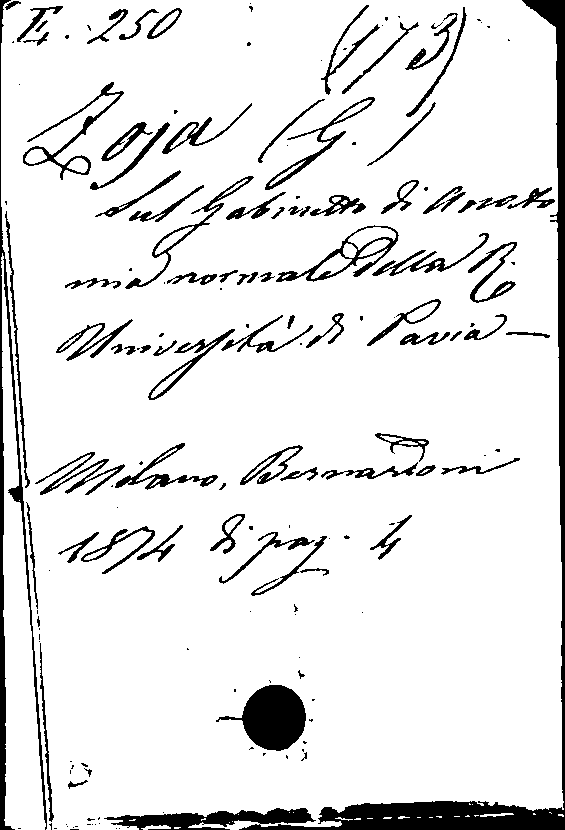 E. 250 (173)
Zoja (G.)
Sul Gabinetto di Anato=
mia normale della R.
Università di Pavia —
Milano, Bernardoni
1874 di pag. 4